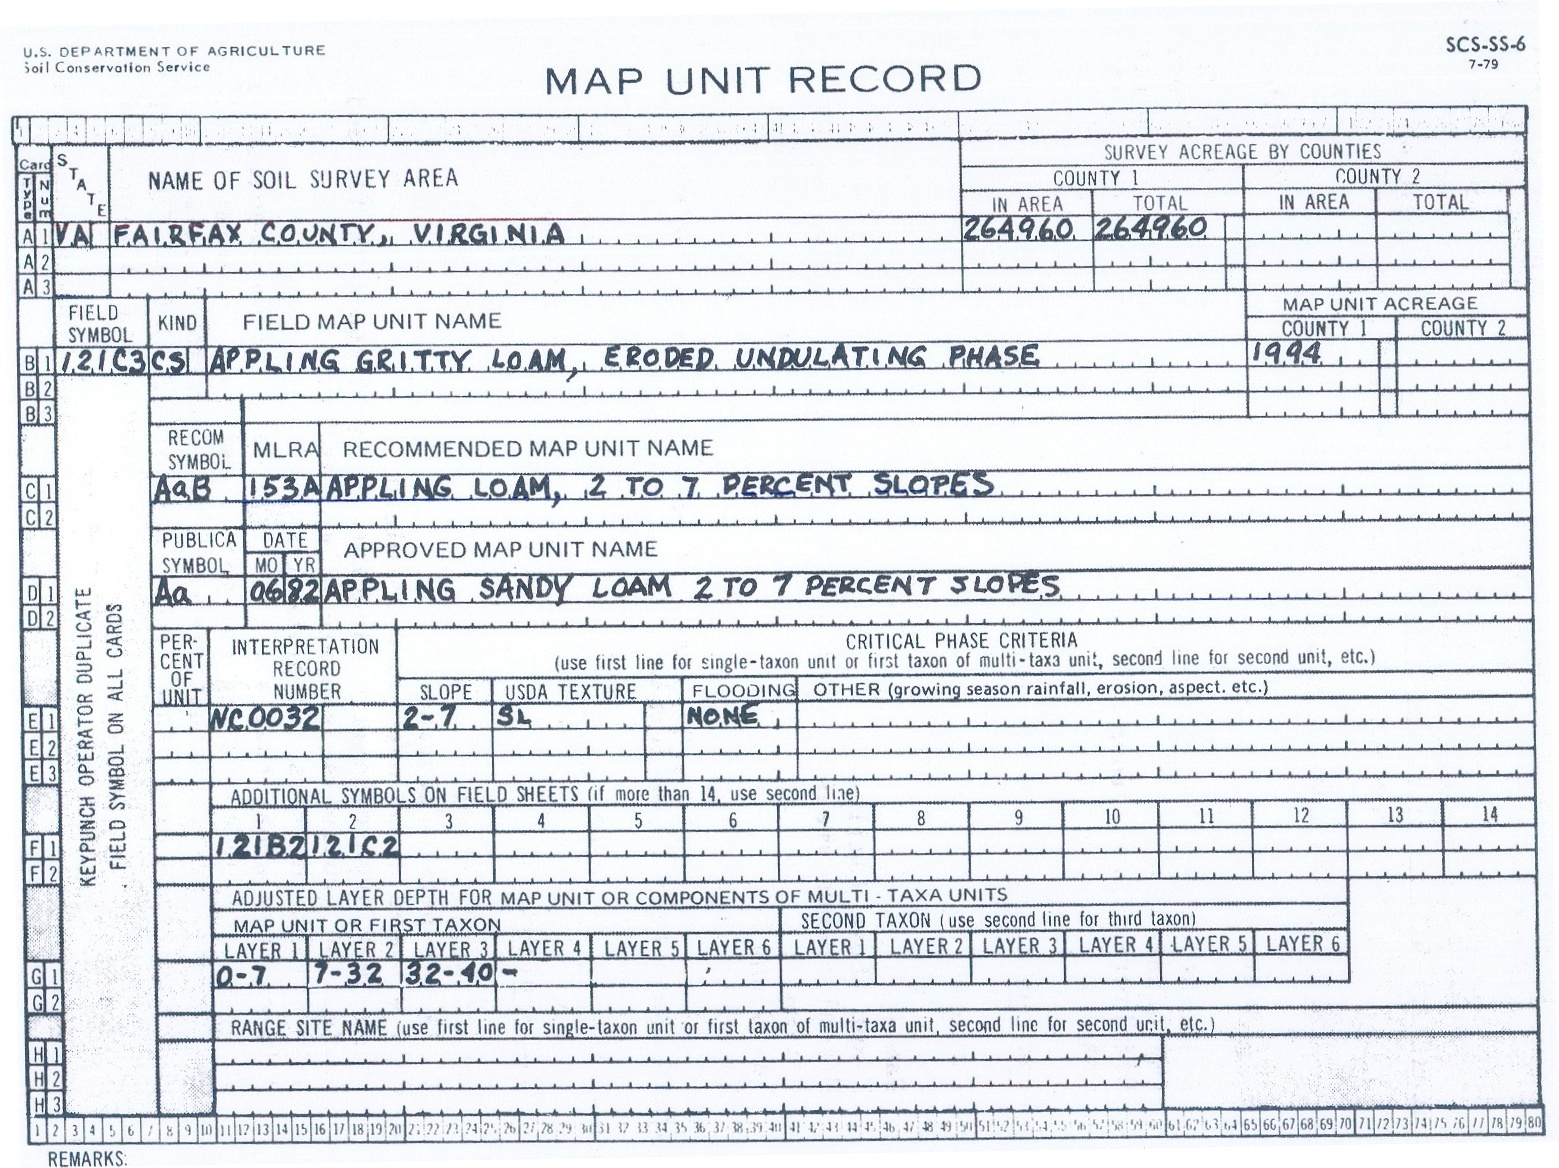 U.S. DEPARTMENT OF AGRICULTURE
Soil Conservation Service
SCS-SS-6
7-79
MAP UNIT RECORD
Card Type Num STATE NAME OF SOIL SURVEY AREA
SURVEY ACREAGE BY COUNTIES
COUNTY 1 COUNTY 2
IN AREA TOTAL IN AREA TOTAL
A 1 VA FAIRFAX COUNTY, VIRGINIA 264960 264960
A 2
A 3
FIELD SYMBOL KIND FIELD MAP UNIT NAME
MAP UNIT ACREAGE
COUNTY 1 COUNTY 2
B 1 121C3 CS APPLING GRITTY LOAM, ERODED UNDULATING PHASE 1994
B 2
B 3
RECOM SYMBOL MLRA RECOMMENDED MAP UNIT NAME
C 1 AaB 153A APPLING LOAM, 2 TO 7 PERCENT SLOPES
C 2
PUBLICA SYMBOL DATE MO YR APPROVED MAP UNIT NAME
D 1 Aa 06 82 APPLING SANDY LOAM 2 TO 7 PERCENT SLOPES
D 2
KEYPUNCH OPERATOR DUPLICATE
FIELD SYMBOL ON ALL CARDS
PER-CENT OF UNIT INTERPRETATION RECORD NUMBER
CRITICAL PHASE CRITERIA
(use first line for single-taxon unit or first taxon of multi-taxa unit, second line for second unit, etc.)
SLOPE USDA TEXTURE FLOODING OTHER (growing season rainfall, erosion, aspect. etc.)
E 1 NC0032 2-7 SL NONE
E 2
E 3
ADDITIONAL SYMBOLS ON FIELD SHEETS (if more than 14, use second line)
1 2 3 4 5 6 7 8 9 10 11 12 13 14
F 1 121B2 121C2
F 2
ADJUSTED LAYER DEPTH FOR MAP UNIT OR COMPONENTS OF MULTI - TAXA UNITS
MAP UNIT OR FIRST TAXON SECOND TAXON (use second line for third taxon)
LAYER 1 LAYER 2 LAYER 3 LAYER 4 LAYER 5 LAYER 6 LAYER 1 LAYER 2 LAYER 3 LAYER 4 LAYER 5 LAYER 6
G 1 0-7 7-32 32-40 -
G 2
RANGE SITE NAME (use first line for single-taxon unit or first taxon of multi-taxa unit, second line for second unit, etc.)
H 1
H 2
H 3
1 2 3 4 5 6 7 8 9 10 11 12 13 14 15 16 17 18 19 20 21 22 23 24 25 26 27 28 29 30 31 32 33 34 35 36 37 38 39 40 41 42 43 44 45 46 47 48 49 50 51 52 53 54 55 56 57 58 59 60 61 62 63 64 65 66 67 68 69 70 71 72 73 74 75 76 77 78 79 80
REMARKS: